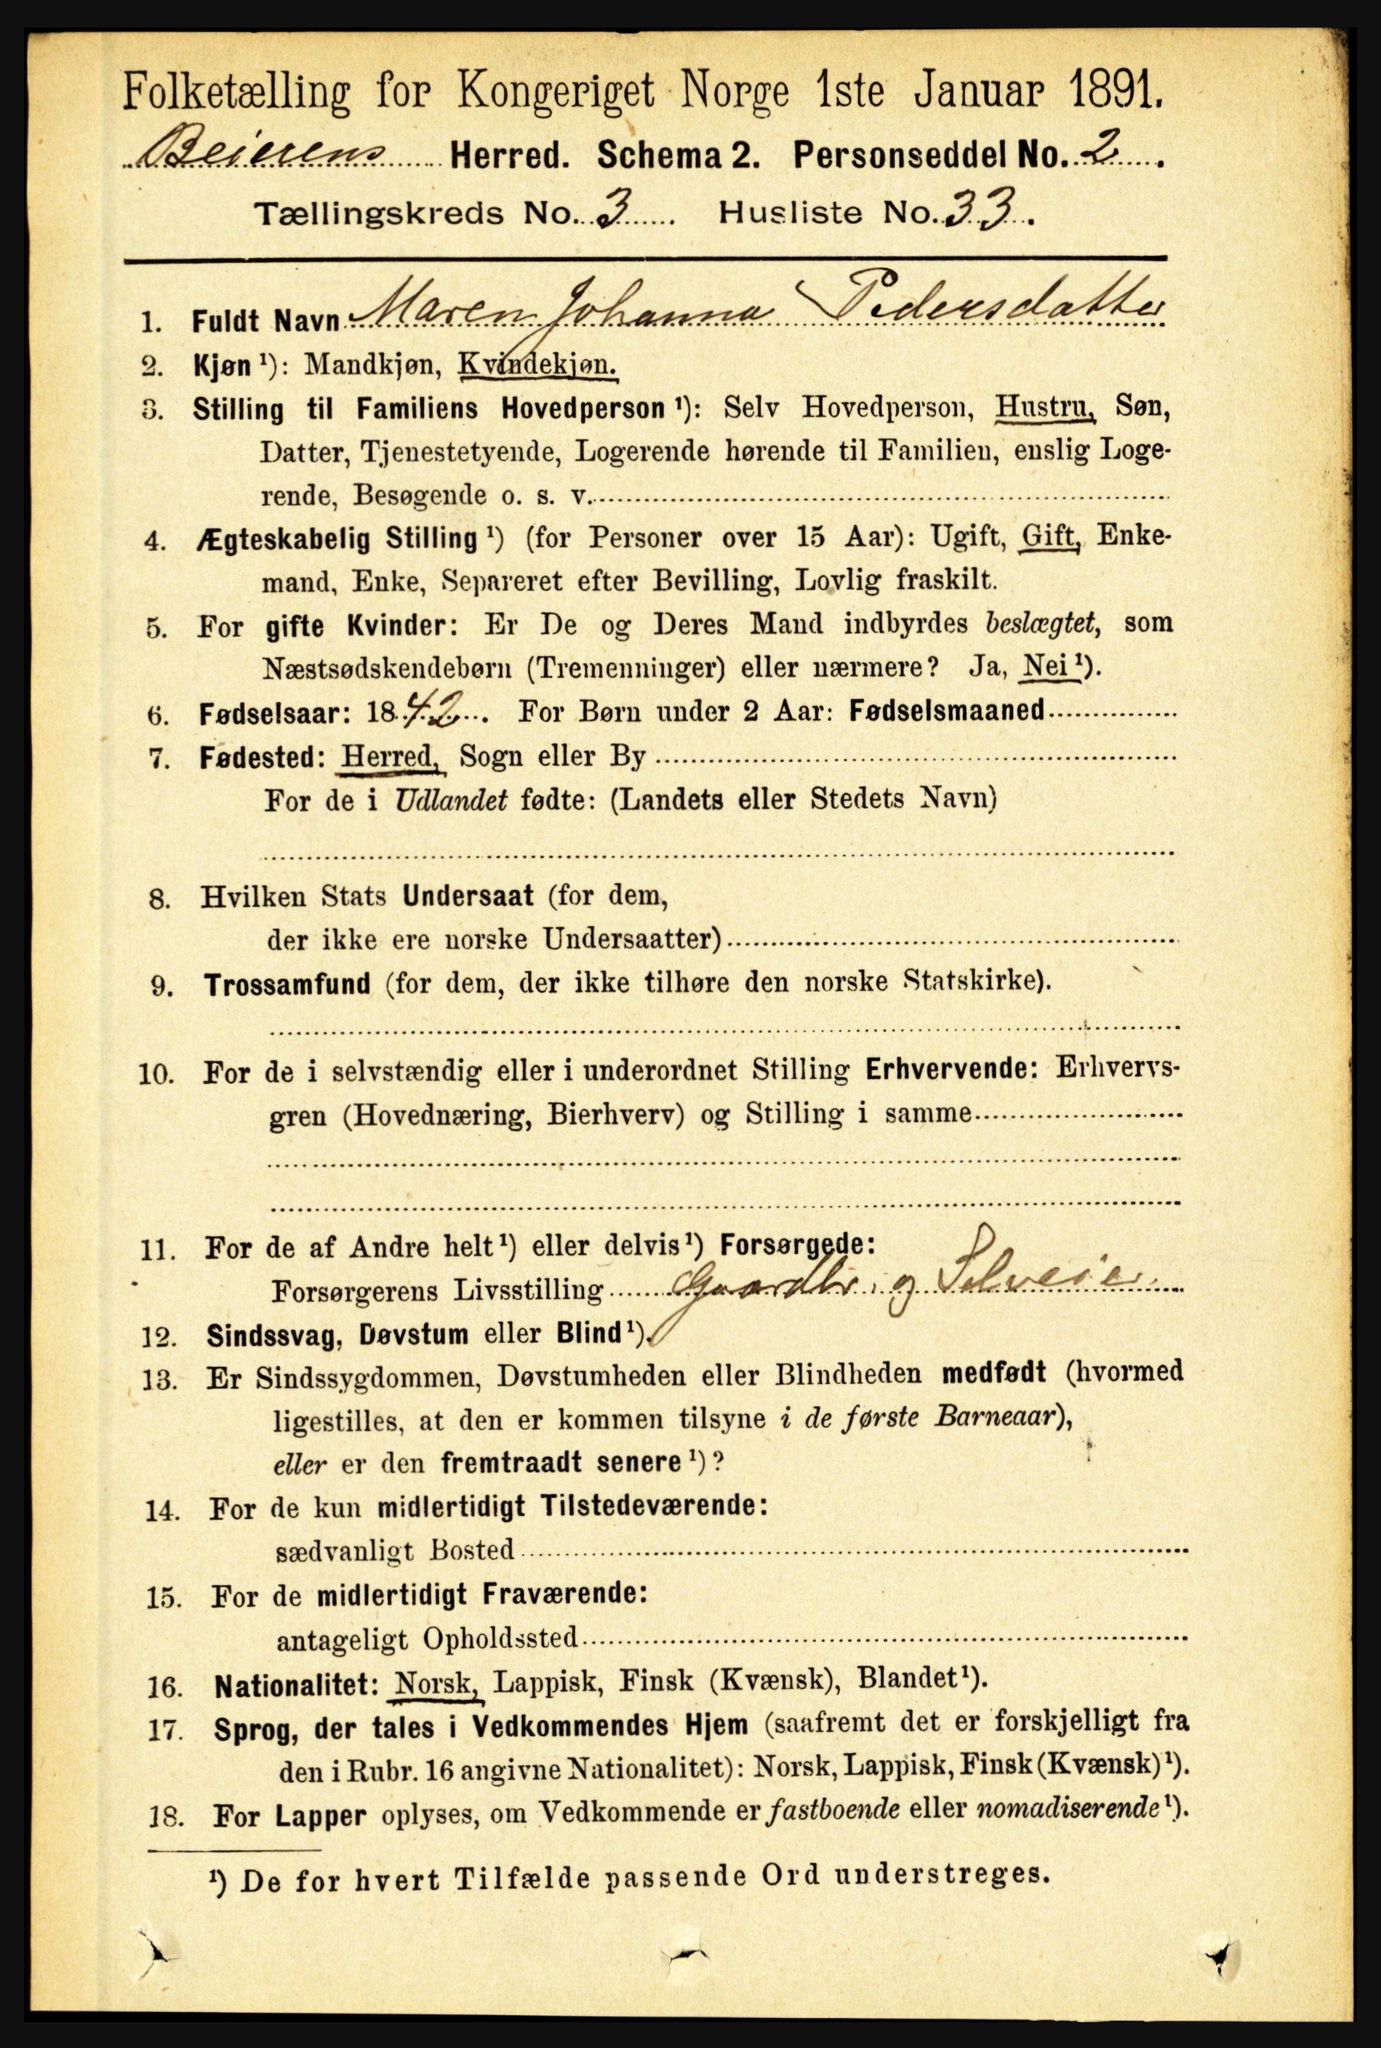 Folketælling for Kongeriget Norge 1ste Januar 1891.
Beierens Herred. Schema 2. Personseddel No. 2.
Tællingskreds No. 3. Husliste No. 33.
1. Fuldt Navn Maren Johanna Pedersdatter
2. Kjøn ¹): Mandkjøn, Kvindekjøn.
3. Stilling til Familiens Hovedperson ¹): Selv Hovedperson, Hustru, Søn,
Datter, Tjenestetyende, Logerende hørende til Familien, enslig Loge-
rende, Besøgende o. s. v.
4. Ægteskabelig Stilling ¹) (for Personer over 15 Aar): Ugift, Gift, Enke-
mand, Enke, Separeret efter Bevilling, Lovlig fraskilt.
5. For gifte Kvinder: Er De og Deres Mand indbyrdes beslægtet, som
Næstsødskendebørn (Tremenninger) eller nærmere? Ja, Nei ¹).
6. Fødselsaar: 1842. For Børn under 2 Aar: Fødselsmaaned
7. Fødested: Herred, Sogn eller By
For de i Udlandet fødte: (Landets eller Stedets Navn)
8. Hvilken Stats Undersaat (for dem,
der ikke ere norske Undersaatter)
9. Trossamfund (for dem, der ikke tilhøre den norske Statskirke).
10. For de i selvstændig eller i underordnet Stilling Erhvervende: Erhvervs-
gren (Hovednæring, Bierhverv) og Stilling i samme
11. For de af Andre helt ¹) eller delvis ¹) Forsørgede:
Forsørgerens Livsstilling Gaardbr. og Selveier.
12. Sindssvag, Døvstum eller Blind ¹).
13. Er Sindssygdommen, Døvstumheden eller Blindheden medfødt (hvormed
ligestilles, at den er kommen tilsyne i de første Barneaar),
eller er den fremtraadt senere ¹)?
14. For de kun midlertidigt Tilstedeværende:
sædvanligt Bosted
15. For de midlertidigt Fraværende:
antageligt Opholdssted
16. Nationalitet: Norsk, Lappisk, Finsk (Kvænsk), Blandet ¹).
17. Sprog, der tales i Vedkommendes Hjem (saafremt det er forskjelligt fra
den i Rubr. 16 angivne Nationalitet): Norsk, Lappisk, Finsk (Kvænsk) ¹).
18. For Lapper oplyses, om Vedkommende er fastboende eller nomadiserende ¹).
¹) De for hvert Tilfælde passende Ord understreges.